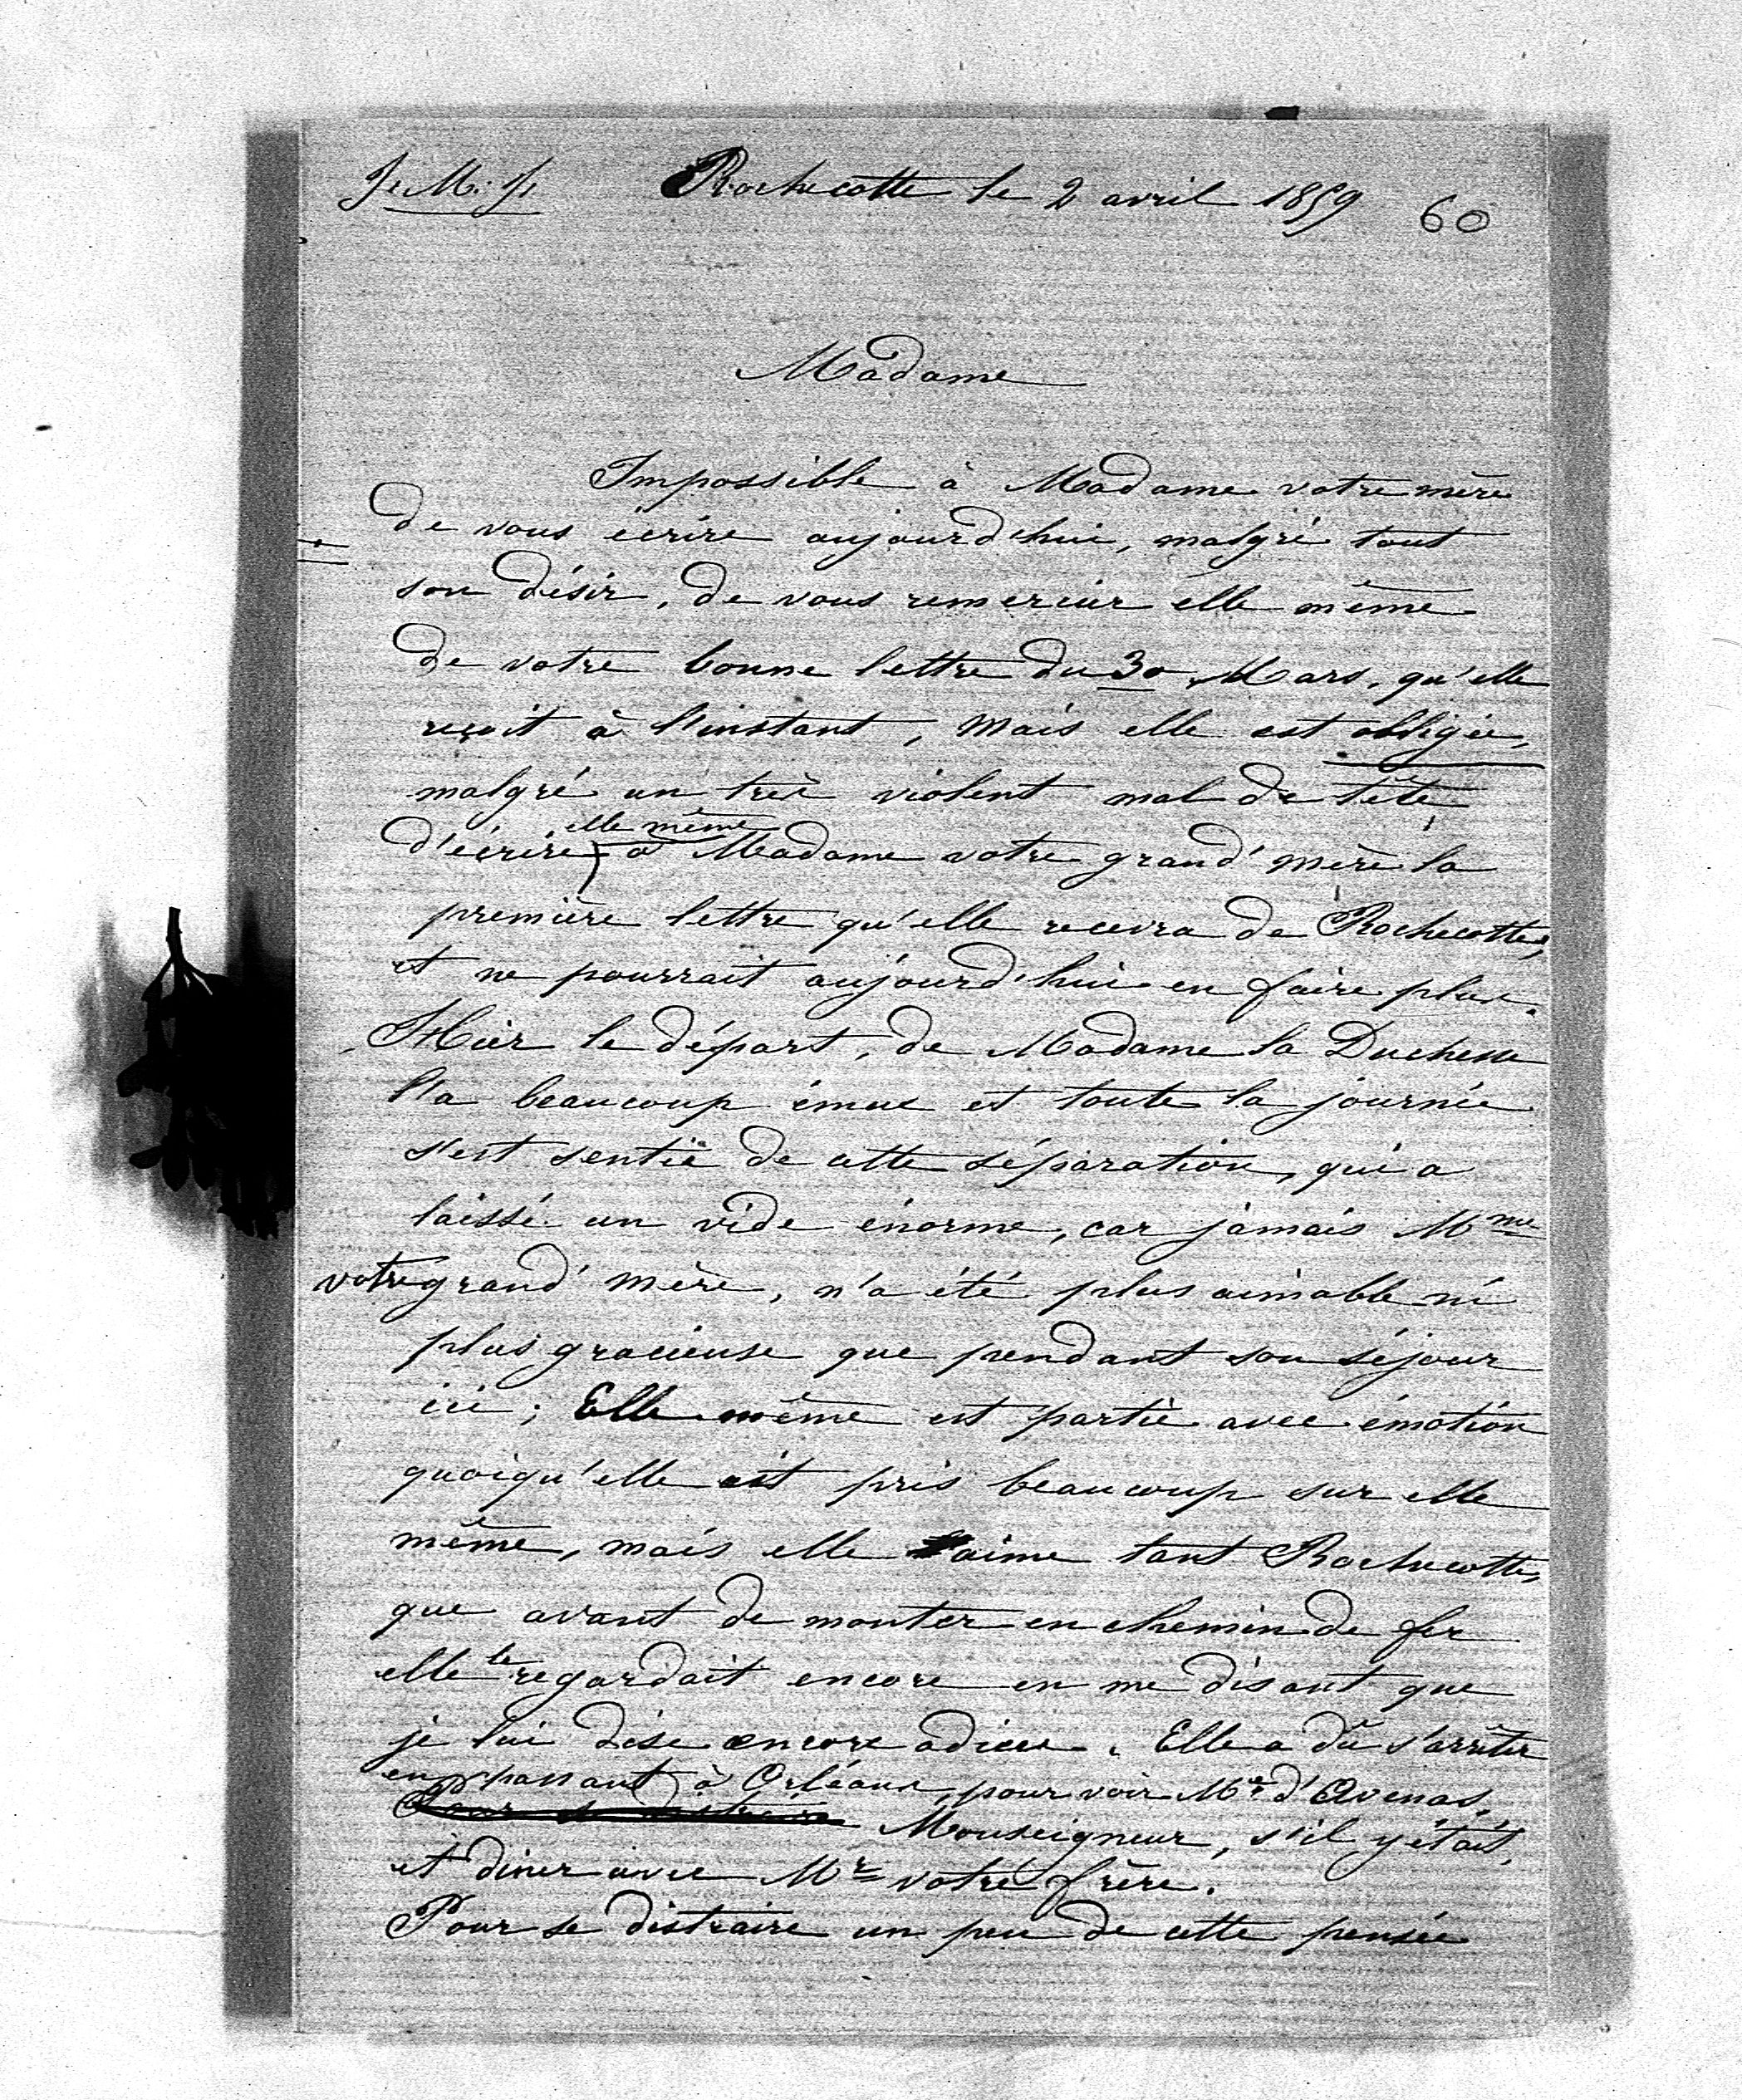 J. M. J. Rochecotte le 2 avril 1859 60
Madame
Impossible à Madame votre mère
de vous écrire aujourd'hui, malgré tout
son désir, de vous remercier elle même
de votre bonne lettre du 30 Mars, qu'elle
reçoit à l'instant, mais elle est obligée,
malgré un très violent mal de tête,
elle même
d'écrire à Madame votre grand'mère la
première lettre qu'elle recevra de Rochecotte,
et ne pourrait aujourd'hui en faire plus.
Hier le départ, de Madame la Duchesse
l'a beaucoup émue et toute la journée
s'est sentie de cette séparation, qui a
laissé un vide énorme, car jamais Mme
votre grand'mère, n'a été plus aimable ni
plus gracieuse que pendant son séjour
ici; Elle même est partie avec émotion
quoiqu'elle ait pris beaucoup sur elle
même, mais elle aime tant Rochecotte,
que avant de monter en chemin de fer
elle le regardait encore en me disant que
je lui dise encore adieu. Elle a dû s'arrêter
en passant à Orléans, pour voir Me d'Avenas,
Pour se distraire Monseigneur, s'il y était,
et diner avec Mr votre frère.
Pour se distraire un peu de cette pensée